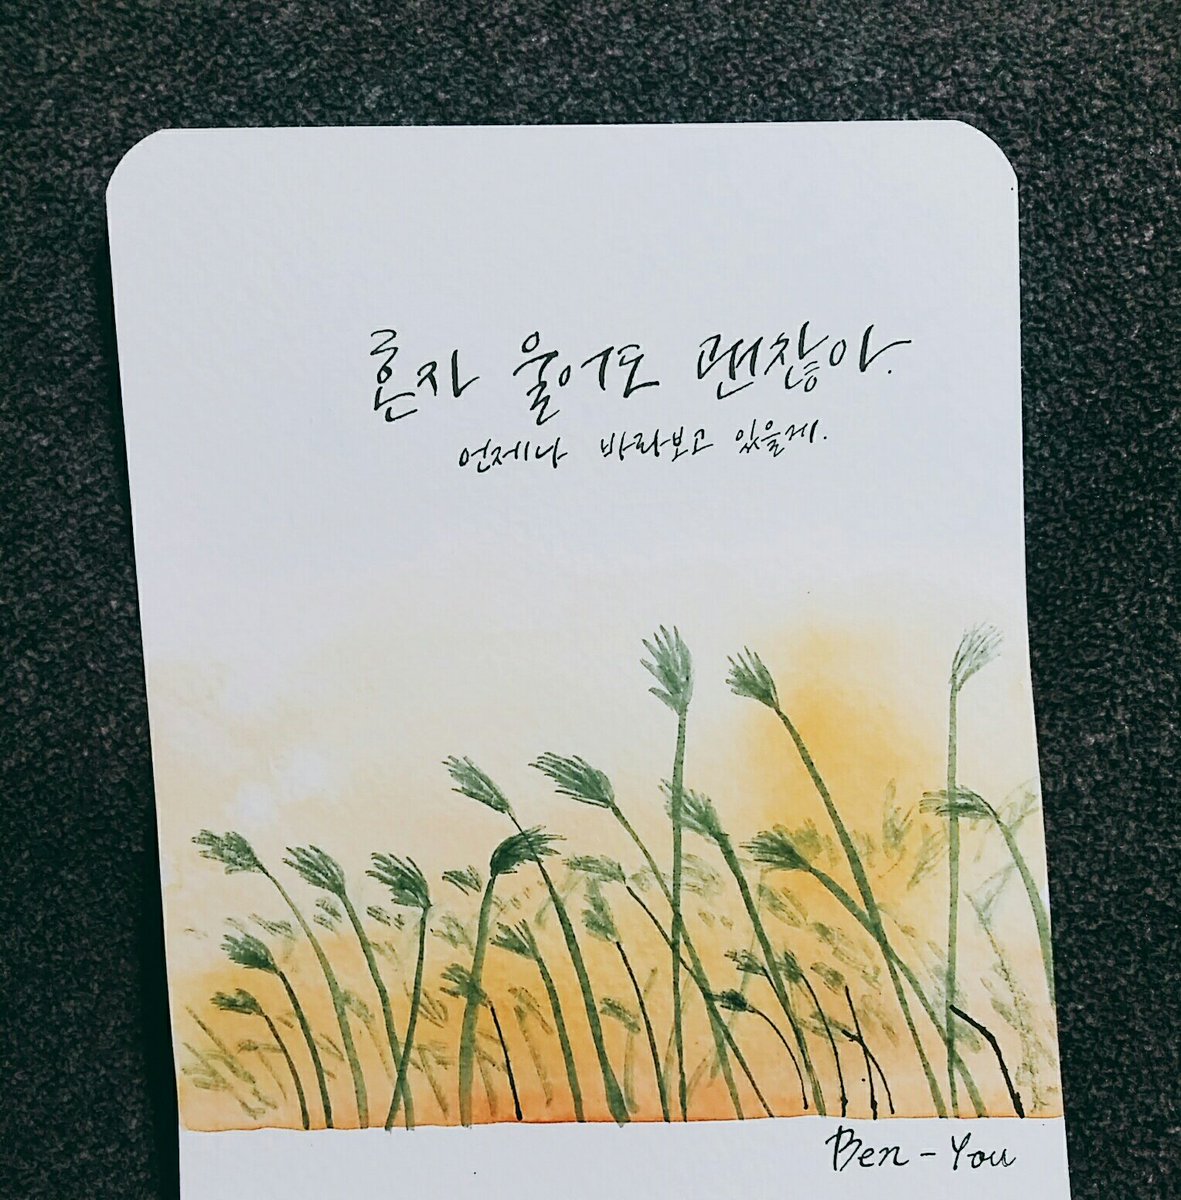 혼자 울어도 괜찮아.
언제나 바라보고 있을게.
Ben - You